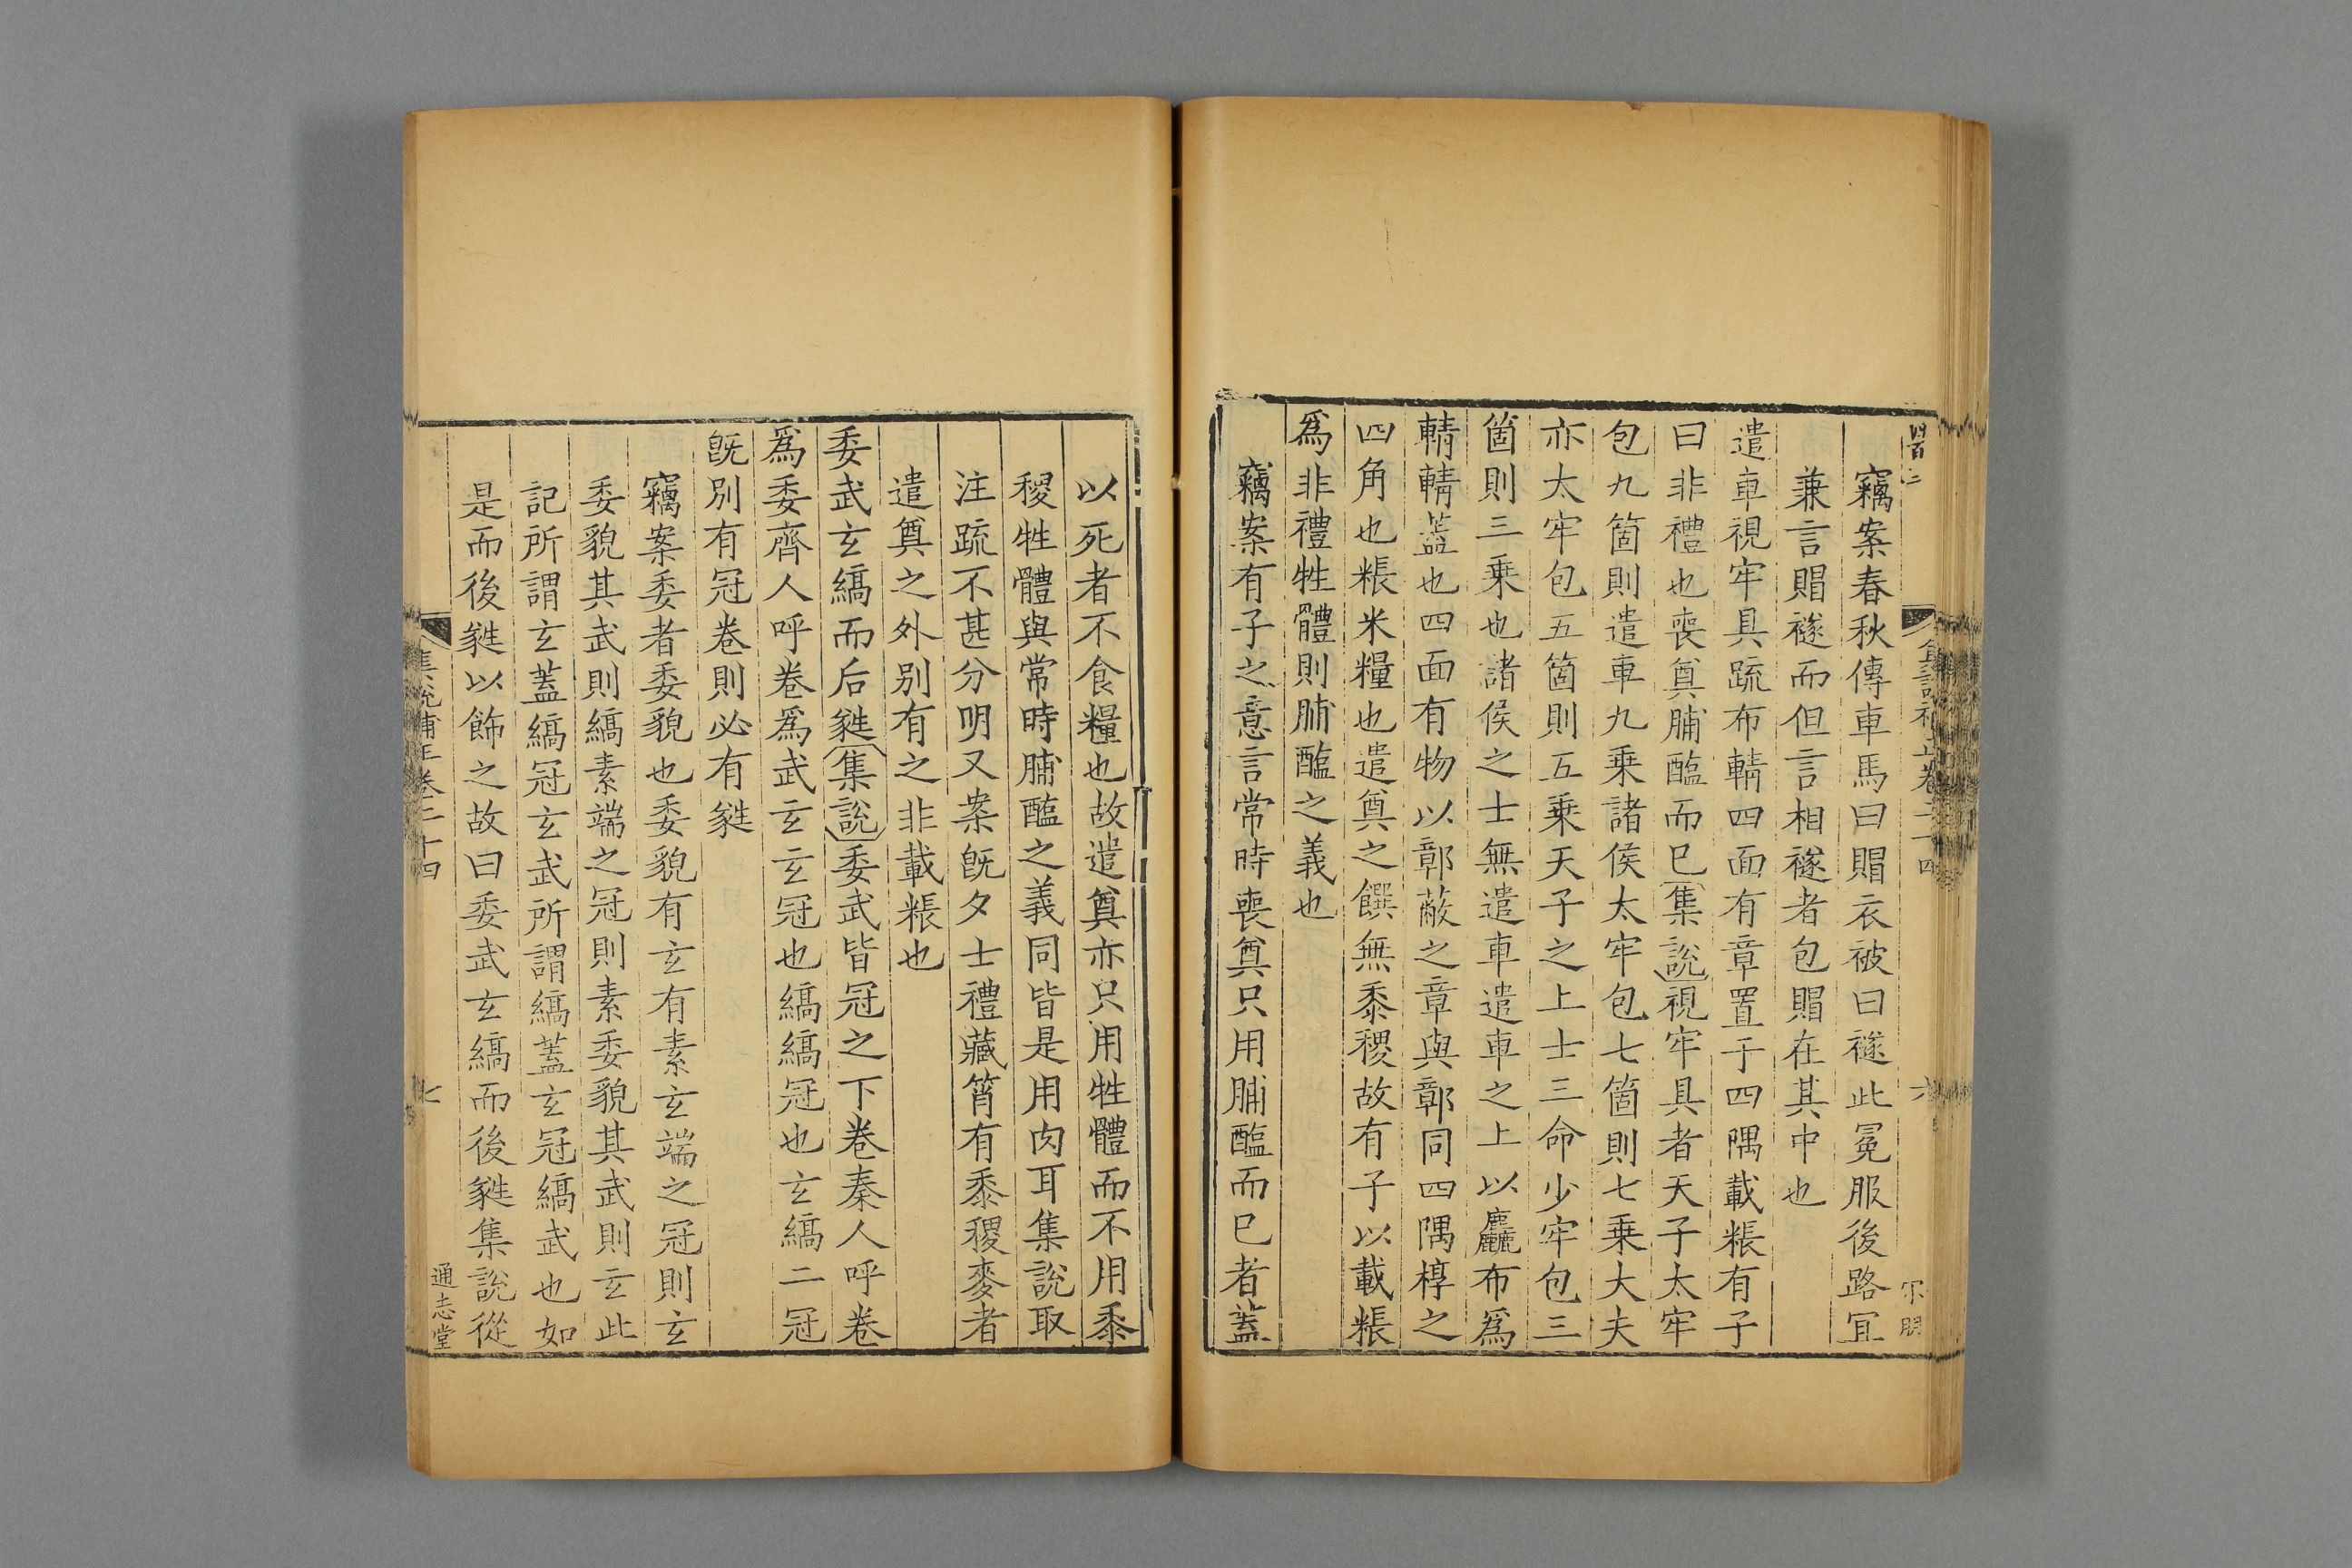 竊案春秋傳車馬曰賵衣被曰襚此冕服後路宜
兼言賵襚而但言相襚者包賵在其中也
遣車視牢具疏布輤四面有章置于四隅載粻有子
曰非禮也喪奠脯醢而已集說視牢具者天子太牢
包九箇則遣車九乗諸侯太牢包七箇則七乗大夫
亦太牢包五箇則五乗天子之上士三命少牢包三
箇則三乗也諸侯之士無遣車遣車之上以麤布爲
輤輤蓋也四面有物以鄣蔽之章與鄣同四隅椁之
四角也粻米糧也遣奠之饌無黍稷故有子以載粻
爲非禮牲體則脯醢之義也
竊案有子之意言常時喪奠只用脯醢而已者蓋
以死者不食糧也故遣奠亦只用牲體而不用黍
稷牲體與常時脯醢之義同皆是用肉耳集說取
注疏不甚分明又案旣夕士禮藏筲有黍稷麥者
遣奠之外別有之非載粻也
委武玄縞而后蕤集說委武皆冠之下卷秦人呼卷
爲委齊人呼卷爲武玄玄冠也縞縞冠也玄縞二冠
旣別有冠卷則必有蕤
竊案委者委貌也委貌有玄有素玄端之冠則玄
委貌其武則縞素端之冠則素委貌其武則玄此
記所謂玄蓋縞冠玄武所謂縞蓋玄冠縞武也如
是而後蕤以飾之故曰委武玄縞而後蕤集說從
集說補正卷三十四
七
通志堂